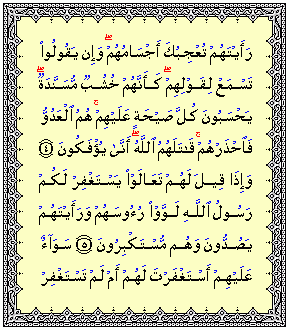 رَأَيْتَهُمْ تُعْجِبُكَ أَجْسَامُهُمْ ۖ وَإِن يَقُولُوا۟
تَسْمَعْ لِقَوْلِهِمْ ۖ كَأَنَّهُمْ خُشُبٌ مُّسَنَّدَةٌ ۖ
يَحْسَبُونَ كُلَّ صَيْحَةٍ عَلَيْهِمْ ۚ هُمُ ٱلْعَدُوُّ
فَٱحْذَرْهُمْ ۚ قَـٰتَلَهُمُ ٱللَّهُ ۖ أَنَّىٰ يُؤْفَكُونَ ﴿٤﴾
وَإِذَا قِيلَ لَهُمْ تَعَالَوْا۟ يَسْتَغْفِرْ لَكُمْ
رَسُولُ ٱللَّهِ لَوَّوْا۟ رُءُوسَهُمْ وَرَأَيْتَهُمْ
يَصُدُّونَ وَهُم مُّسْتَكْبِرُونَ ﴿٥﴾ سَوَآءٌ
عَلَيْهِمْ أَسْتَغْفَرْتَ لَهُمْ أَمْ لَمْ تَسْتَغْفِرْ